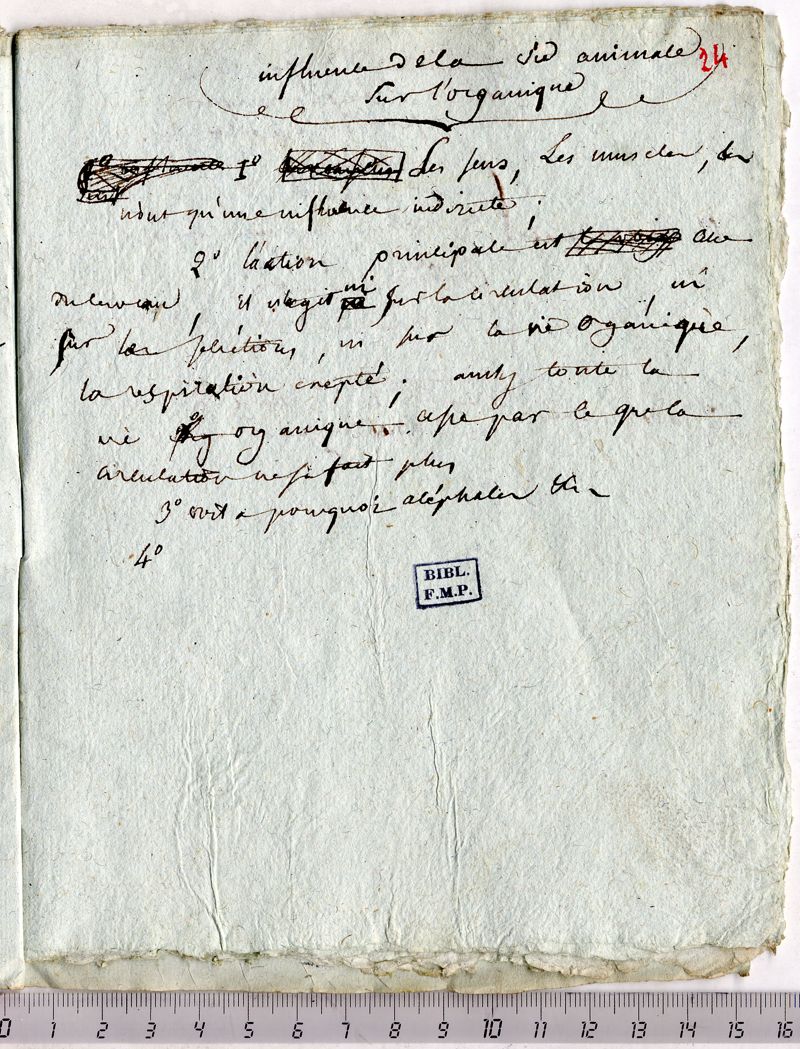 24
influence de la vie animale
sur l'organique
1° Les sens, Les muscles, &c
n'ont qu'une influence indirecte ;
2° l'action principale est celle
du cerveau, et il n'agit ni sur la circulation, ni
sur les sécrétions, ni sur la vie organique,
la respiration exepté ; aussy toute la
vie organique cesse par ce que la
circulation ne se fait plus
3° voit pourquoi acéphales &c
4°
BIBL.
F.M.P.
0 1 2 3 4 5 6 7 8 9 10 11 12 13 14 15 16